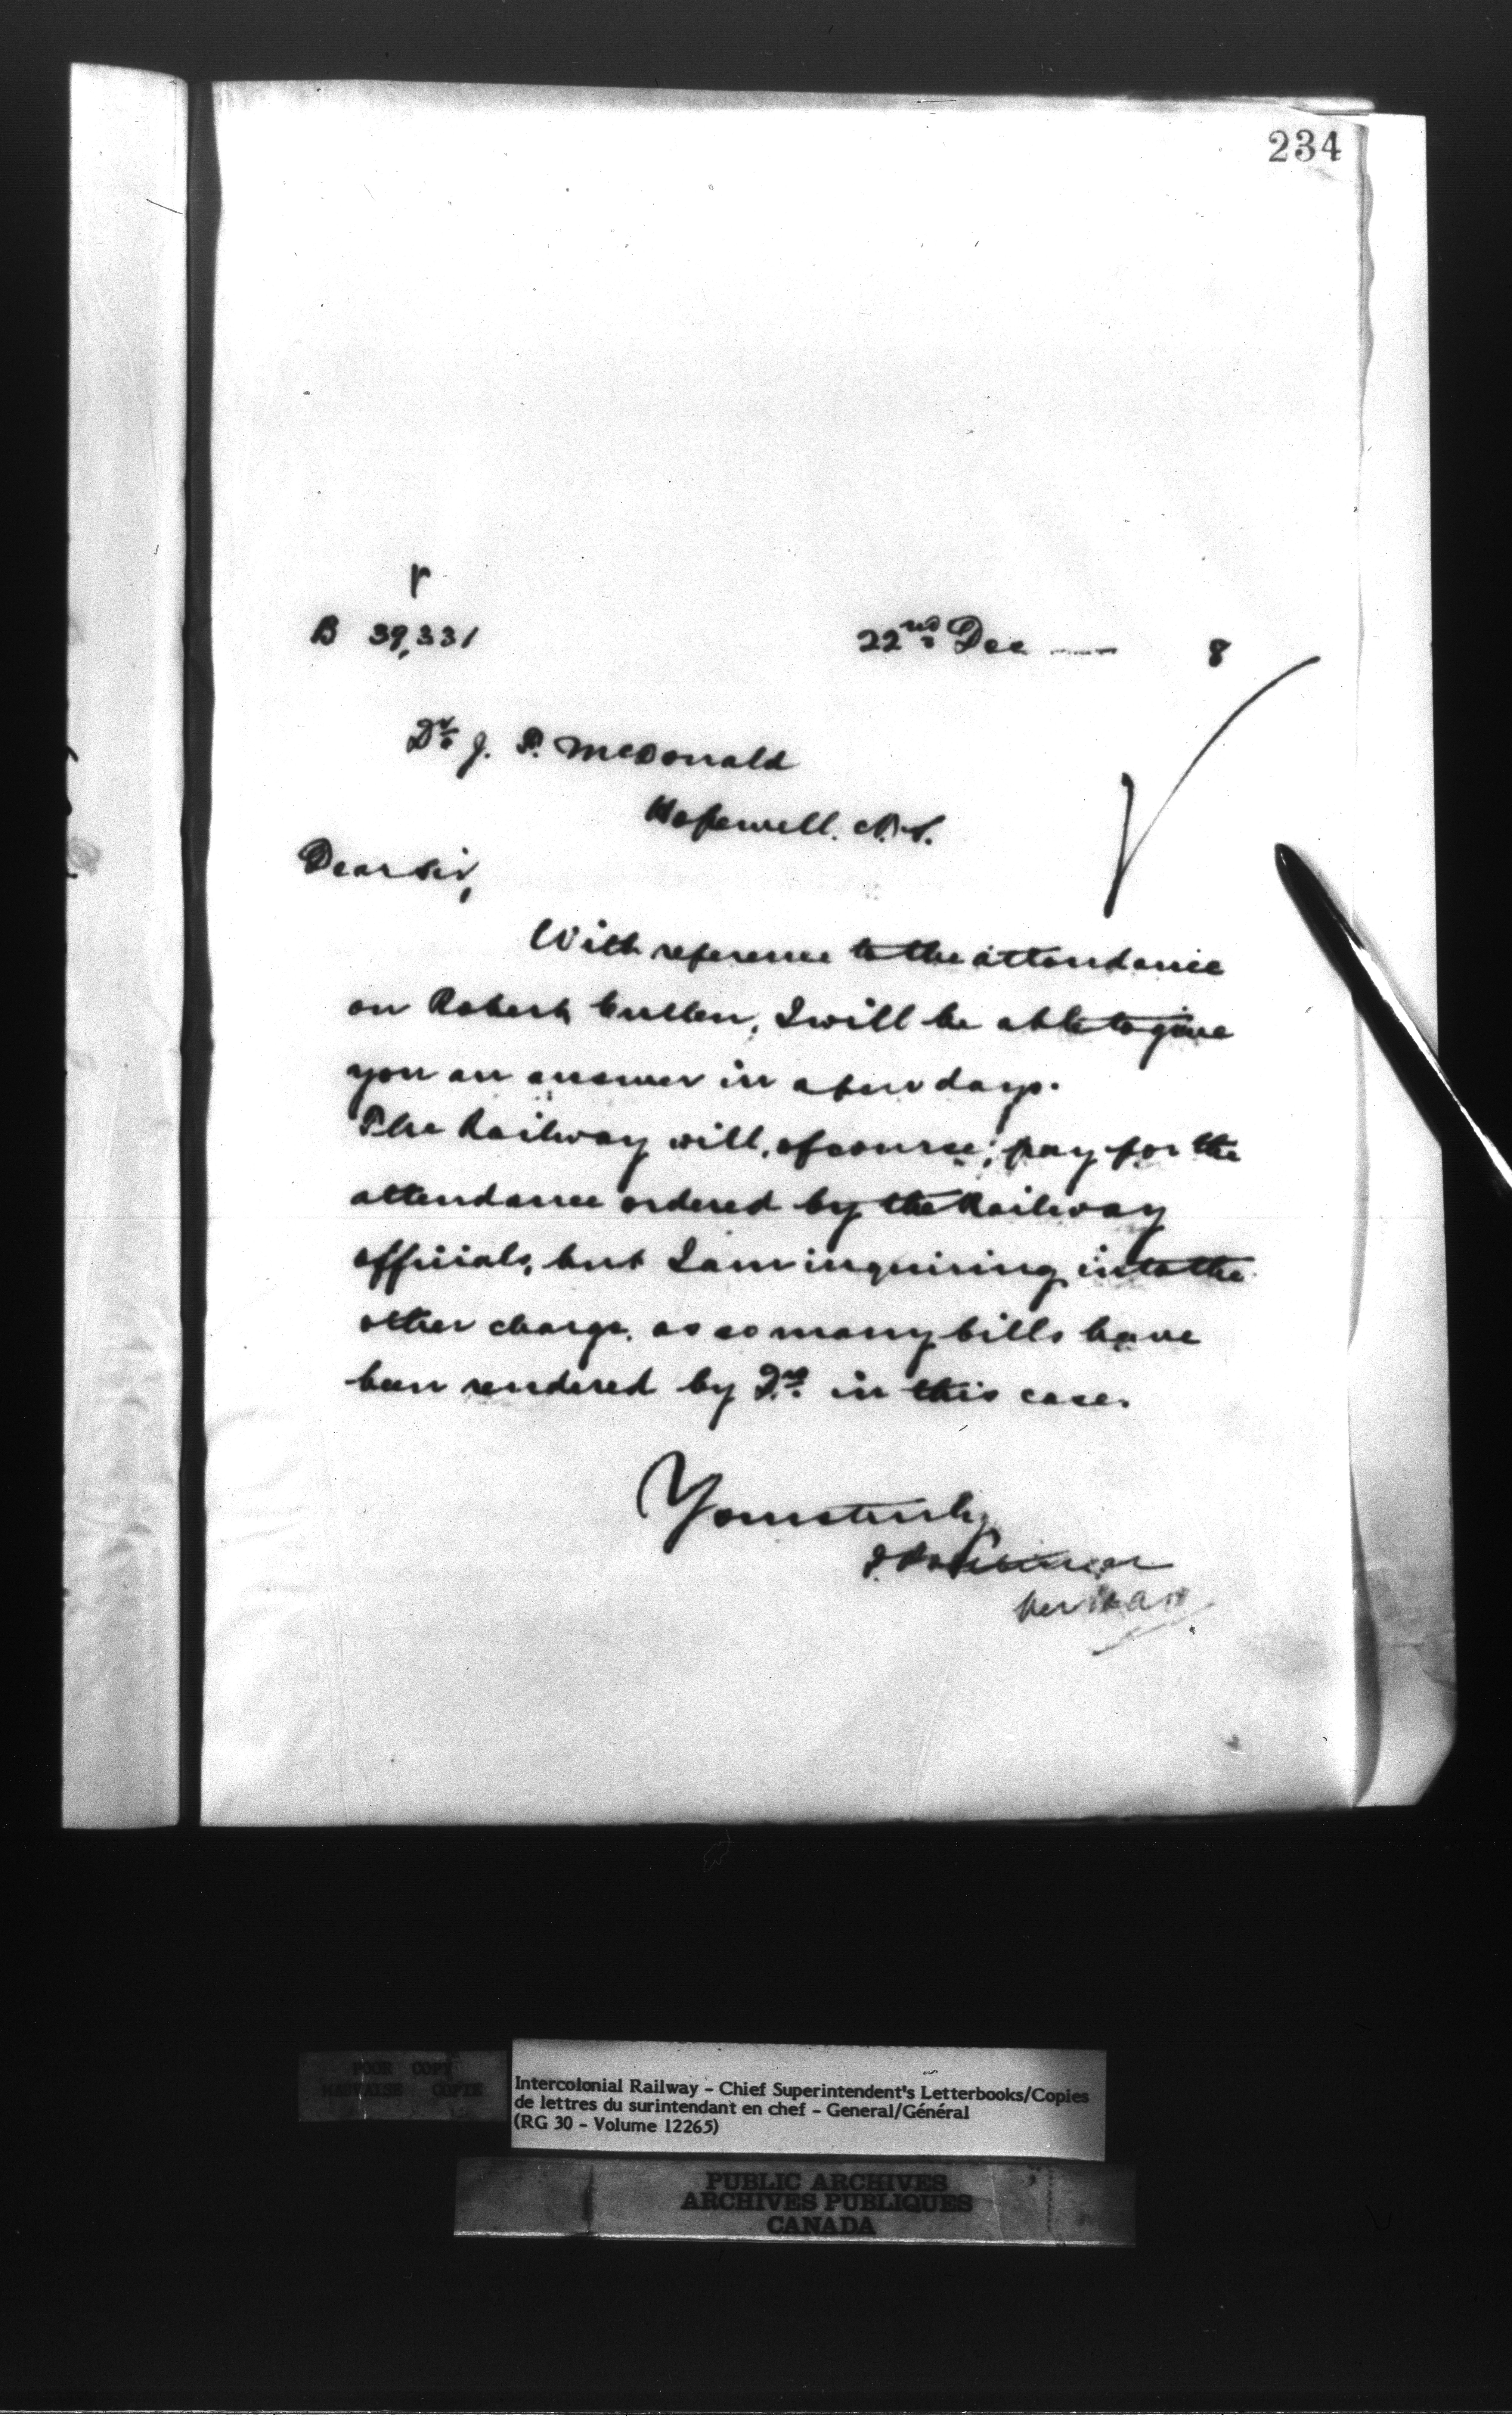 234
B 39,331
22nd Dec — 8
Dr J. P. McDonald
Hopewell. N.S.
Dear Sir,
With reference to the attendance
on Robert Cullen, I will be able to give
you an answer in a few days.
The Railway will, of course, pay for the
attendance ordered by the Railway
officials, but I am inquiring into the
other charge, as so many bills have
been rendered by Drs. in this case.
Yours truly
POOR COPY
MAUVAISE COPIE
Intercolonial Railway - Chief Superintendent's Letterbooks/Copies
de lettres du surintendant en chef - General/Général
(RG 30 - Volume 12265)
PUBLIC ARCHIVES
ARCHIVES PUBLIQUES
CANADA